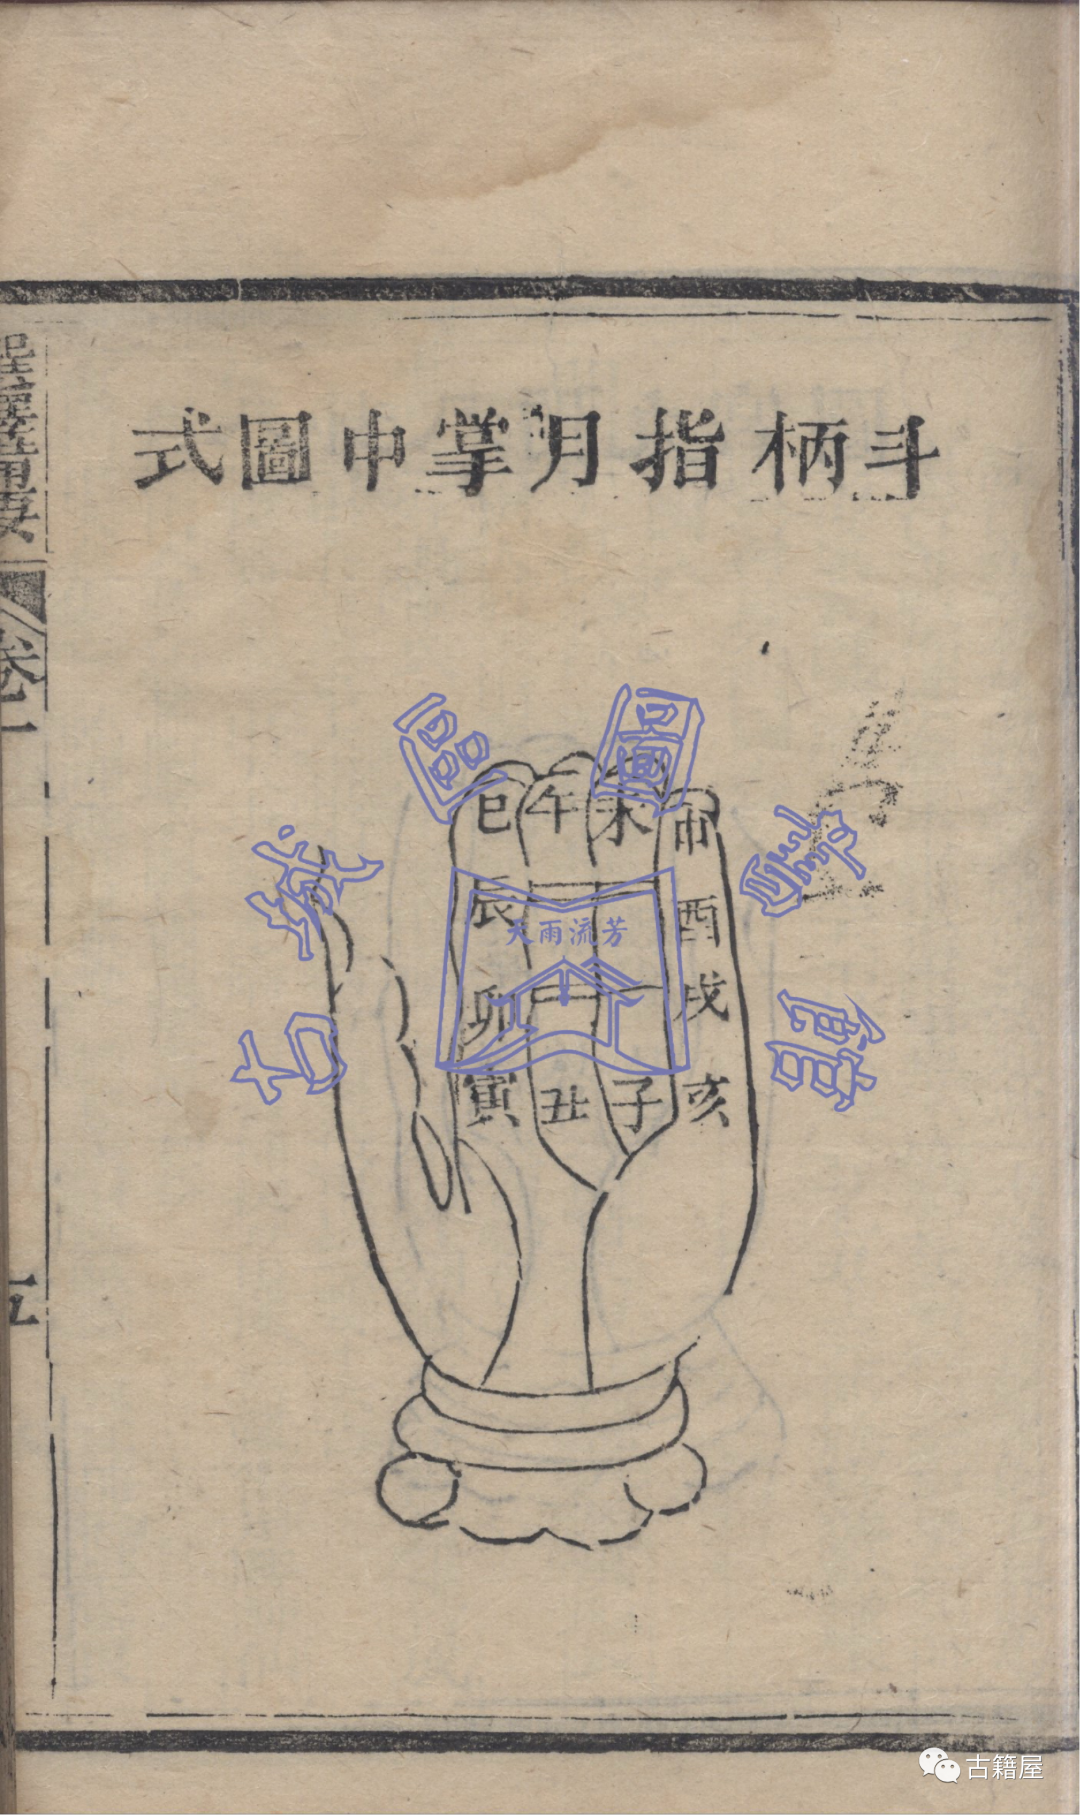 斗柄指月掌中圖式
巳午未申
辰酉
卯戌
寅丑子亥
備要
卷一
五
古城區圖書館
天雨流芳
古籍屋